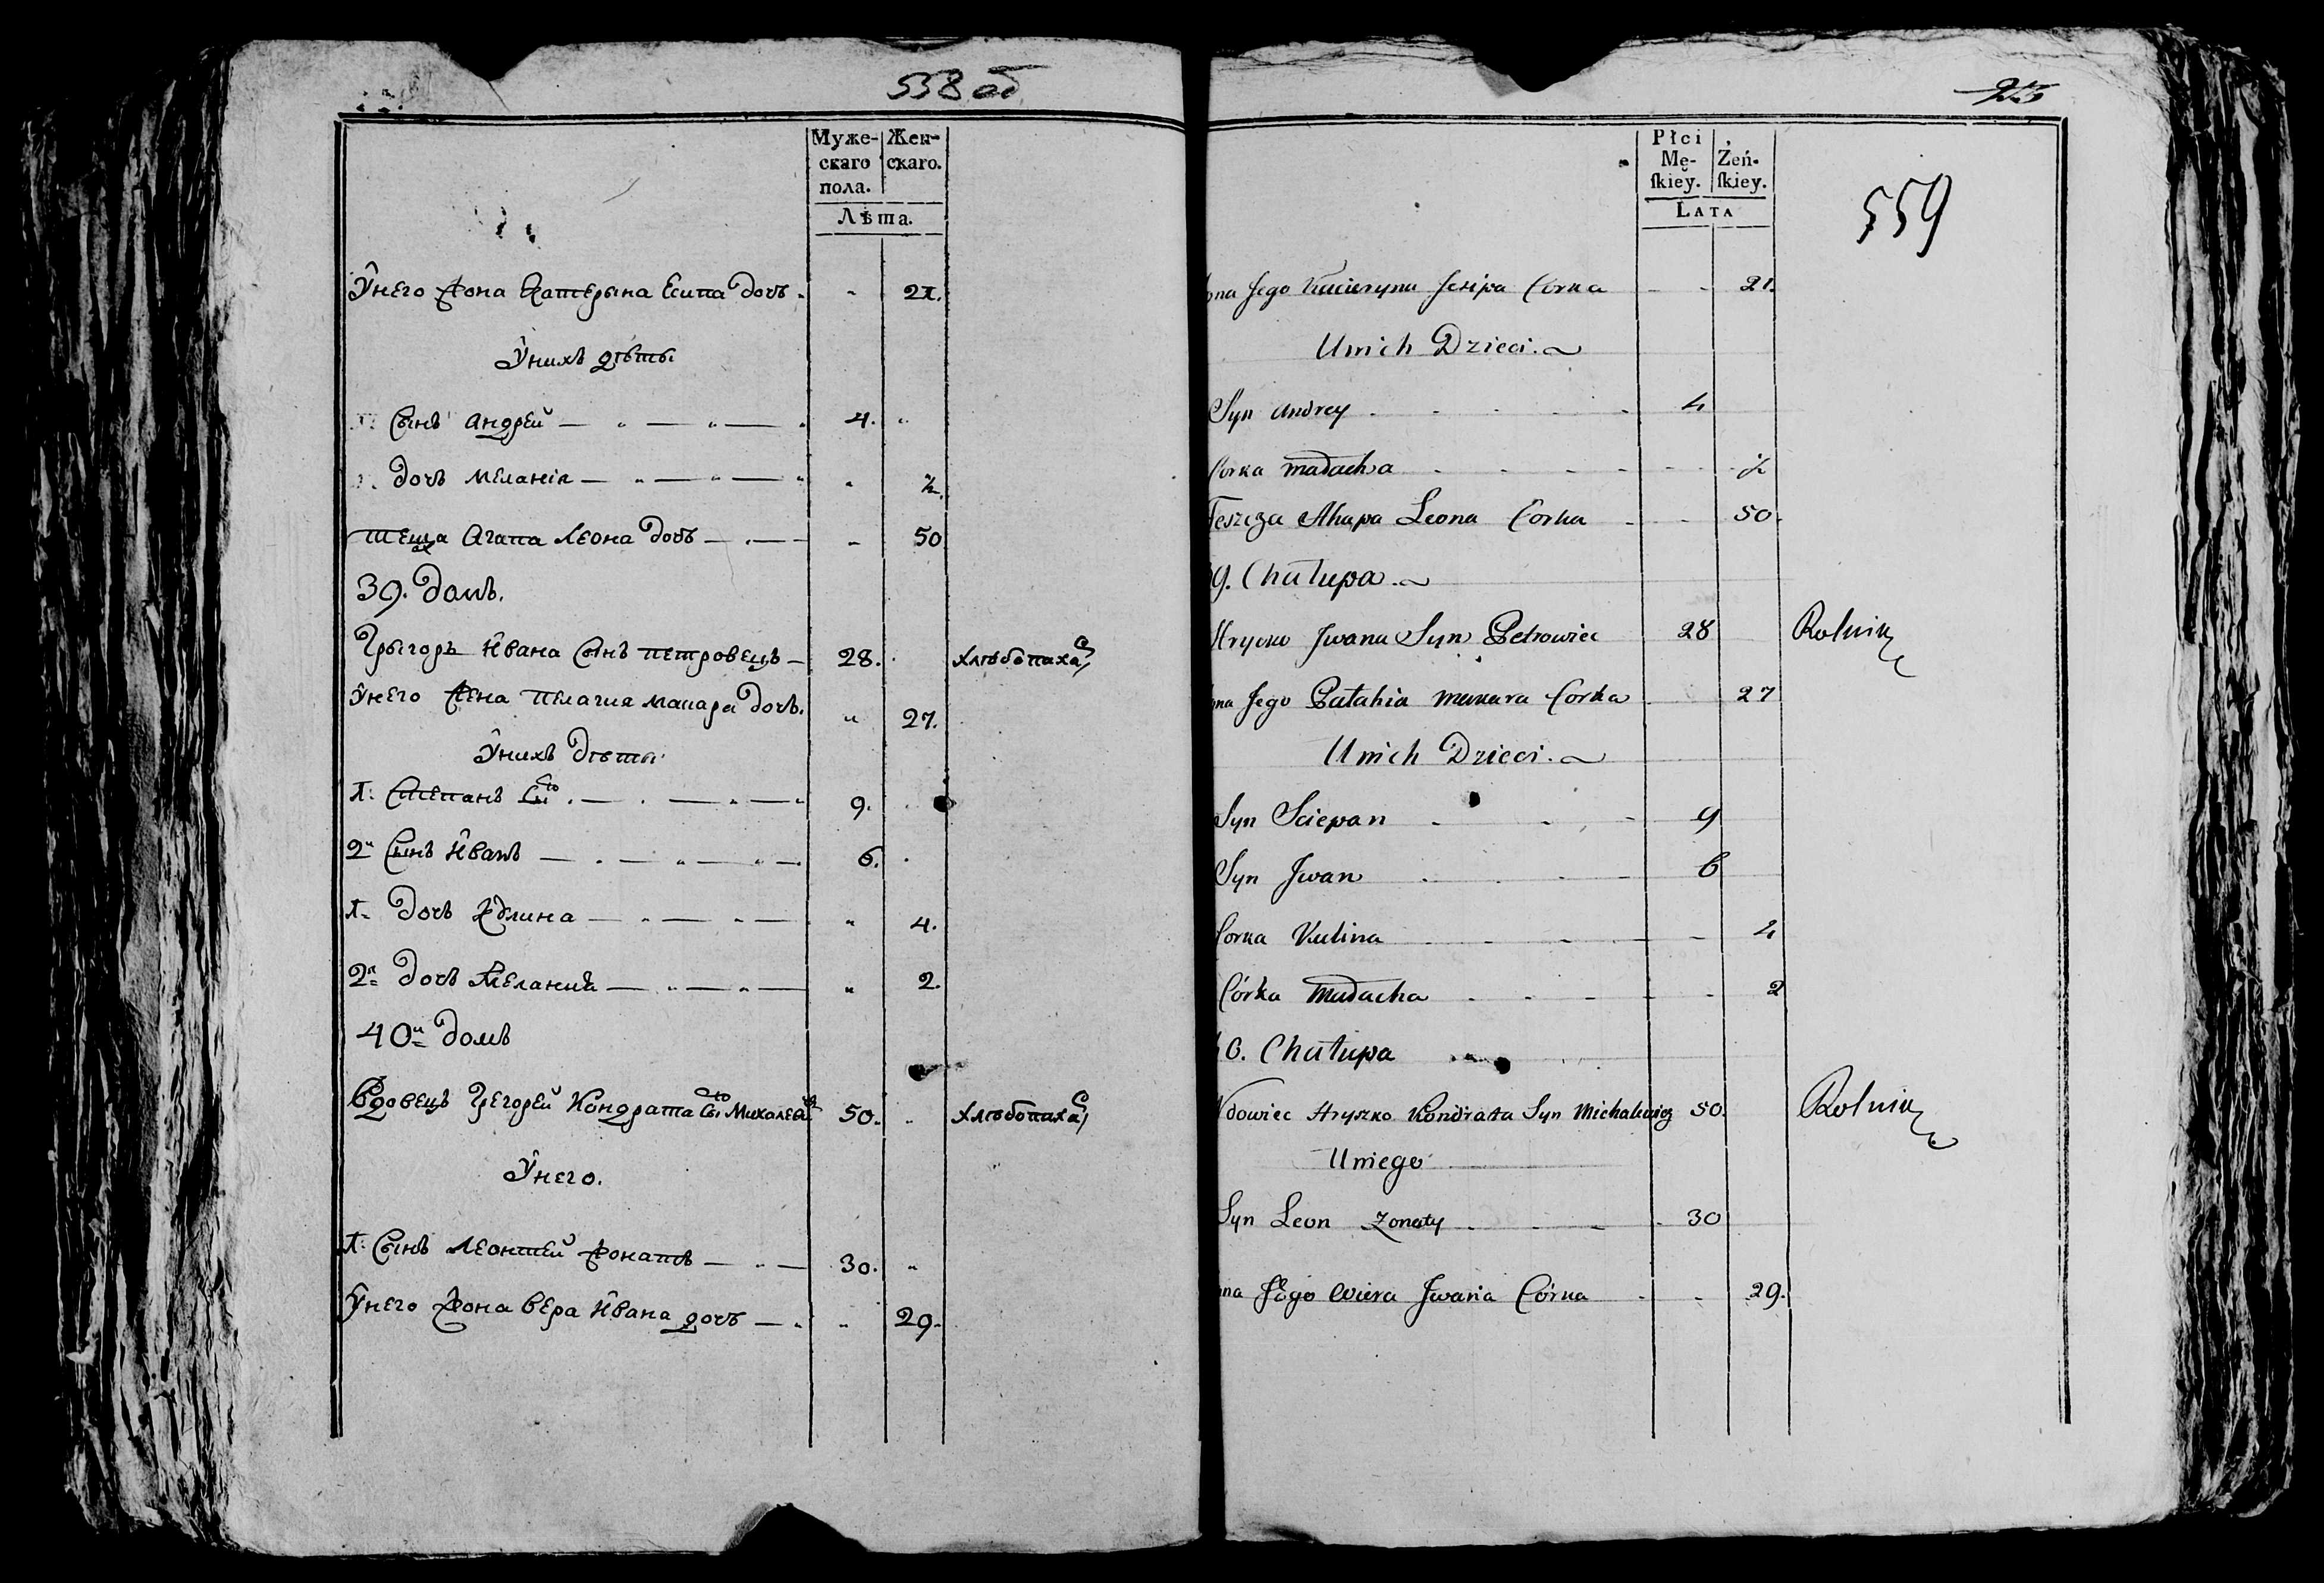 538 об
Муже- Жен-
скаго скаго.
пола.
Лѣта.
Унего жона Катерына Есипа дочь - " 21.
Унихъ дѣты
Сынъ андрей 4. "
дочь меланія " ½.
теща Агапа Леона дочь - 50
39. домъ.
Грыгоръ Ивана Сынъ петровецъ 28. хлѣбопахац
Унего жена пелагия макара дочь. " 27.
Унихъ дѣты
1. Степанъ 9.
2й Сынъ Иванъ 6.
1. дочь Кулина " 4.
2я дочь Мелания " 2.
40й домъ
Вдовецъ Грегорей Кондрата Михалев 50. " хлѣбопахац
Унего.
1. Сынъ Леонтей жонатъ 30. "
Унего жона вера Ивана дочь " 29.
Płci
Mę- Żeń-
ſkiey. ſkiey.
LATA
559
ona Jego Kacieryna Jesipa Corka 21.
Unich Dzieci.
Syn Andrey 4
Corka madacha ½
Teszcza Ahapa Leona Corka 50.
9. Chałupa.
Hrycko Jwana Syn Petrowiec 28 Rolnik
ona Jego Pałahia makara Corka 27
Unich Dzieci.
Syn Sciepan 9
Syn Jwan 6
Corka Kulina 4
Córka Madacha 2
40. Chałupa
Wdowiec Hryszko Kondrata Syn Michalewicz 50. Rolnik
Uniego
Syn Leon Zonaty 30
ona Jego Wiera Jwana Córka 29.